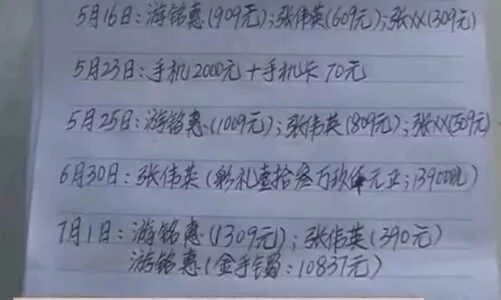 5月16日：游铭惠(909元)；张伟英(609元)；张XX(309元)
5月23日：手机2000元+手机卡70元
5月25日：游铭惠(1009元)；张伟英(809元)；张XX(509元)
6月30日：张伟英(彩礼壹拾叁万玖仟元正；139000元)
7月1日：游铭惠(1309元)；张伟英(390元)
游铭惠(金手镯：10837元)